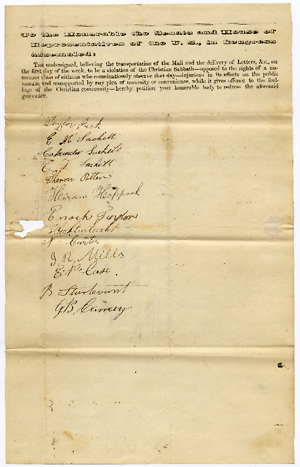 To the Honorable the Senate and House of
Representatives of the U. S. in Congress
Assembled:
The undersigned, believing the transportation of the Mail and the delivery of Letters, &c., on
the first day of the week, to be a violation of the Christian Sabbath—opposed to the rights of a nu-
merous class of citizens who conscientiously observe that day—injurious in its effects on the public
morals, and unsupported by any plea of necessity or convenience, while it gives offence to the feel-
ings of the Christian community—hereby petition your honorable body to redress the aforesaid
grievance.
E M Sackett
Sackett
Sackett
Hiram Hoppock
Enoch
Curtis
J. R. Mills
E. P. Case.
B Sturtevant
G B